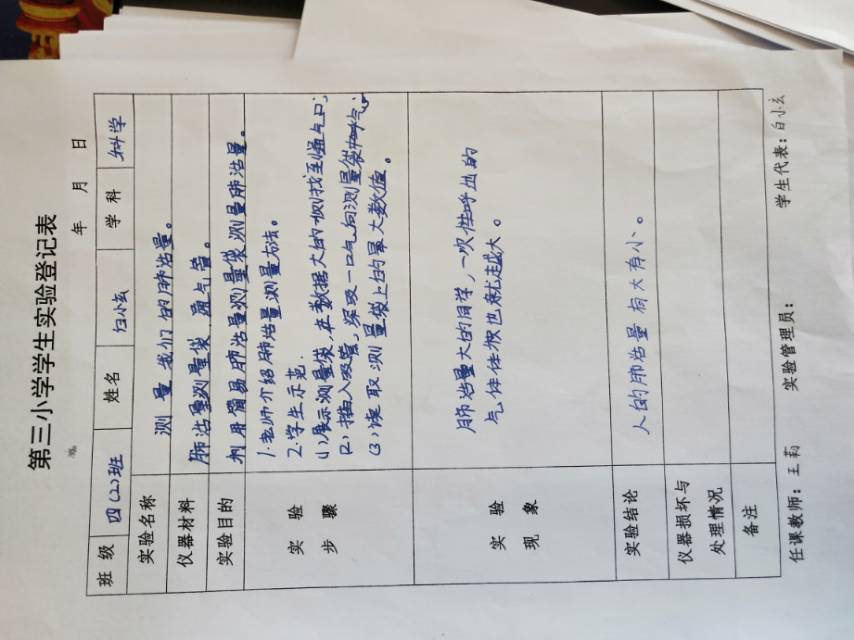 第三小学学生实验登记表
年 月 日
班级 四(2)班 姓名 白小玄 学科 科学
实验名称 测量我们的肺活量。
仪器材料 肺活量测量袋 通气管。
实验目的 利用简易肺活量测量袋测量肺活量。
实验步骤
1.老师介绍肺活量测量方法。
2.学生示范.
(1)展示测量袋,在数据大的一侧找到通气口;
(2)插入吸管,深吸一口气向测量袋中呼气;
(3)读取测量袋上的最大数值。
实验现象
肺活量大的同学,一次性呼出的
气体体积也就越大。
实验结论 人的肺活量有大有小。
仪器损坏与
处理情况
备注
任课教师:王莉 实验管理员: 学生代表:白小玄